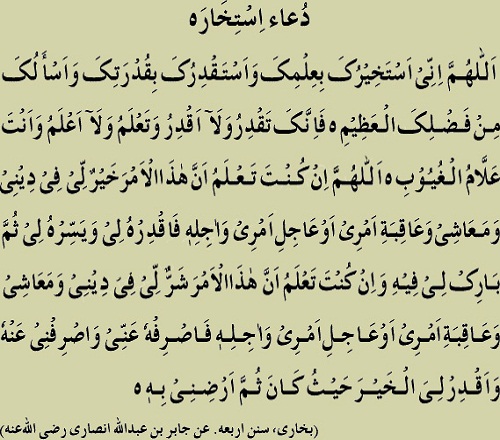 دُعاء اِسْتِخَارَہ
اَللّٰهُمَّ اِنِّیْ اَسْتَخِیْرُکَ بِعِلْمِکَ وَاَسْتَقْدِرُکَ بِقُدْرَتِکَ وَاَسْأَلُکَ
مِنْ فَضْلِکَ الْعَظِیْمِ ہ فَاِنَّکَ تَقْدِرُ وَلَآ اَقْدِرُ وَتَعْلَمُ وَلَآ اَعْلَمُ وَاَنْتَ
عَلَّامُ الْغُیُوْبِ ہ اَللّٰهُمَّ اِنْ کُنْتَ تَعْلَمُ اَنَّ هٰذَا الْاَمْرَ خَیْرٌ لِّیْ فِیْ دِیْنِیْ
وَمَعَاشِیْ وَعَاقِبَةِ اَمْرِیْ اَوْ عَاجِلِ اَمْرِیْ وَاٰجِلِهٖ فَاقْدِرْهُ لِیْ وَیَسِّرْهُ لِیْ ثُمَّ
بَارِکْ لِیْ فِیْهِ وَاِنْ کُنْتَ تَعْلَمُ اَنَّ هٰذَا الْاَمْرَ شَرٌّ لِّیْ فِیْ دِیْنِیْ وَمَعَاشِیْ
وَعَاقِبَةِ اَمْرِیْ اَوْ عَاجِلِ اَمْرِیْ وَاٰجِلِهٖ فَاصْرِفْهُ عَنِّیْ وَاصْرِفْنِیْ عَنْهُ
وَاَقْدِرْ لِیَ الْخَیْرَ حَیْثُ کَانَ ثُمَّ اَرْضِنِیْ بِهٖ ہ
(بخاری، سنن اربعہ. عن جابر بن عبداللہ انصاری رضی اللہ عنہ)